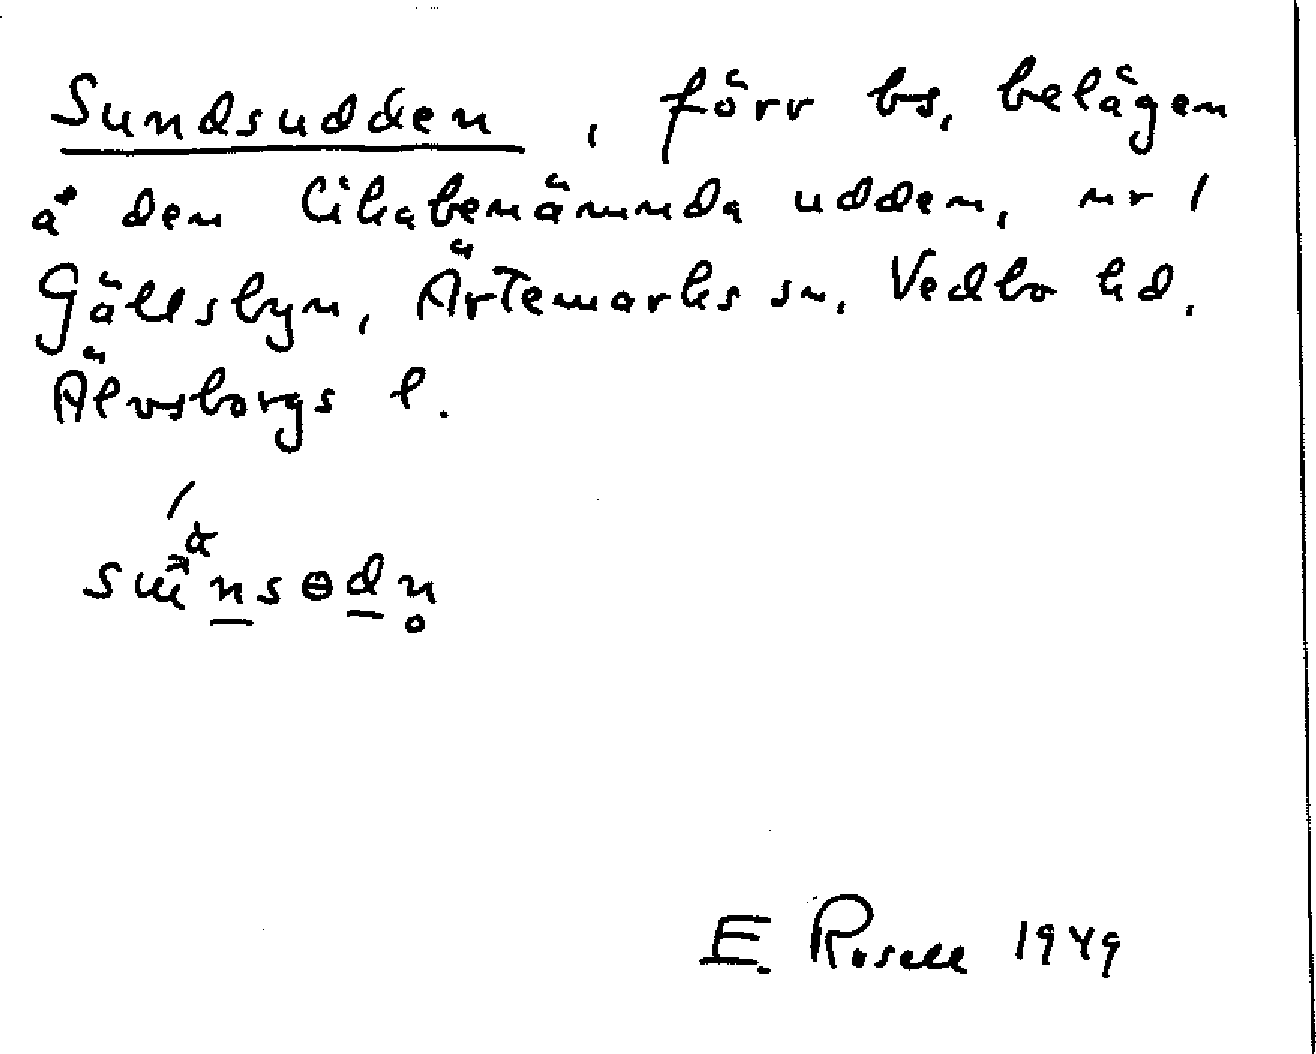 Sundsudden, förr bs, belägen
å den likabenämnda udden, nr 1
Gällsbyn, Ärtemarks sn, Vedbo hd,
Älvsborgs l.
E. Rosell 1949